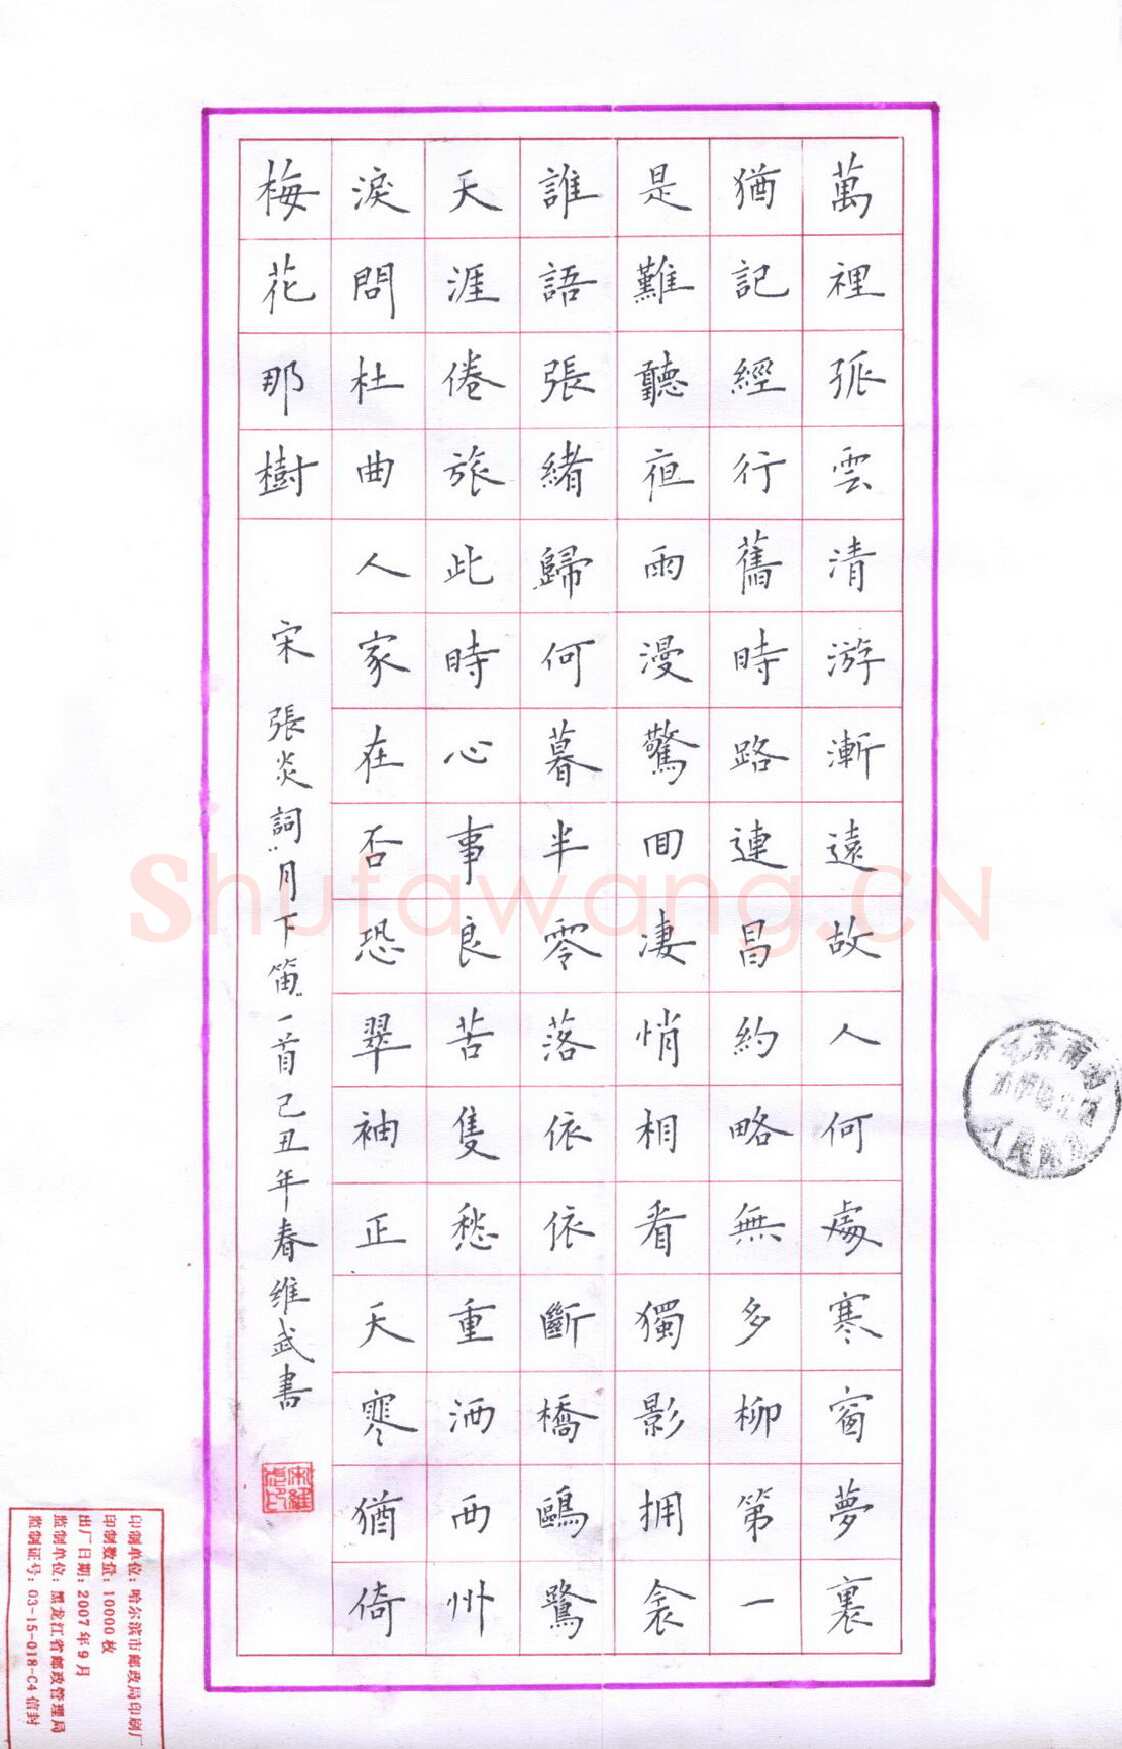 萬裡孤雲清游漸遠故人何處寒窗夢裏
猶記經行舊時路連昌約略無多柳第一
是難聽夜雨漫驚回凄悄相看獨影拥衾
誰語張緒歸何暮半零落依依斷橋鷗鷺
天涯倦旅此時心事良苦隻愁重洒西州
淚問杜曲人家在否恐翠袖正天寒猶倚
梅花那樹
宋 張炎詞"月下笛"一首己丑年春维武書
Shufawang.CN
印制单位：哈尔滨市邮政局印刷厂
印制数量：10000枚
出厂日期：2007年9月
监制单位：黑龙江省邮政管理局
监制证号：03-15-018-C4信封